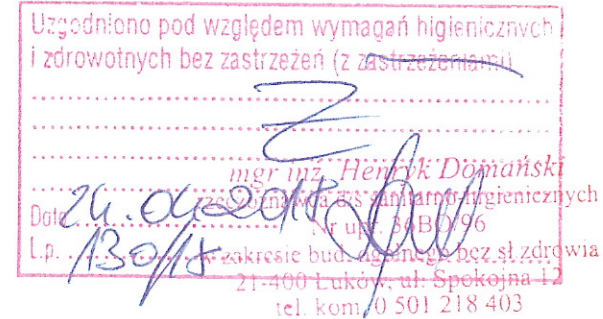 Uzgodniono pod względem wymagań higienicznych
i zdrowotnych bez zastrzeżeń (z zastrzeżeniami)
mgr inż. Henryk Domański
rzeczoznawca d/s sanitarno-higienicznych
Data 24.04.2018 Nr upr. 36B0/96
L.p. 130/18 w zakresie bud. ogólnego bez sł. zdrowia
21-400 Łuków, ul. Spokojna 12
tel. kom. 0 501 218 403